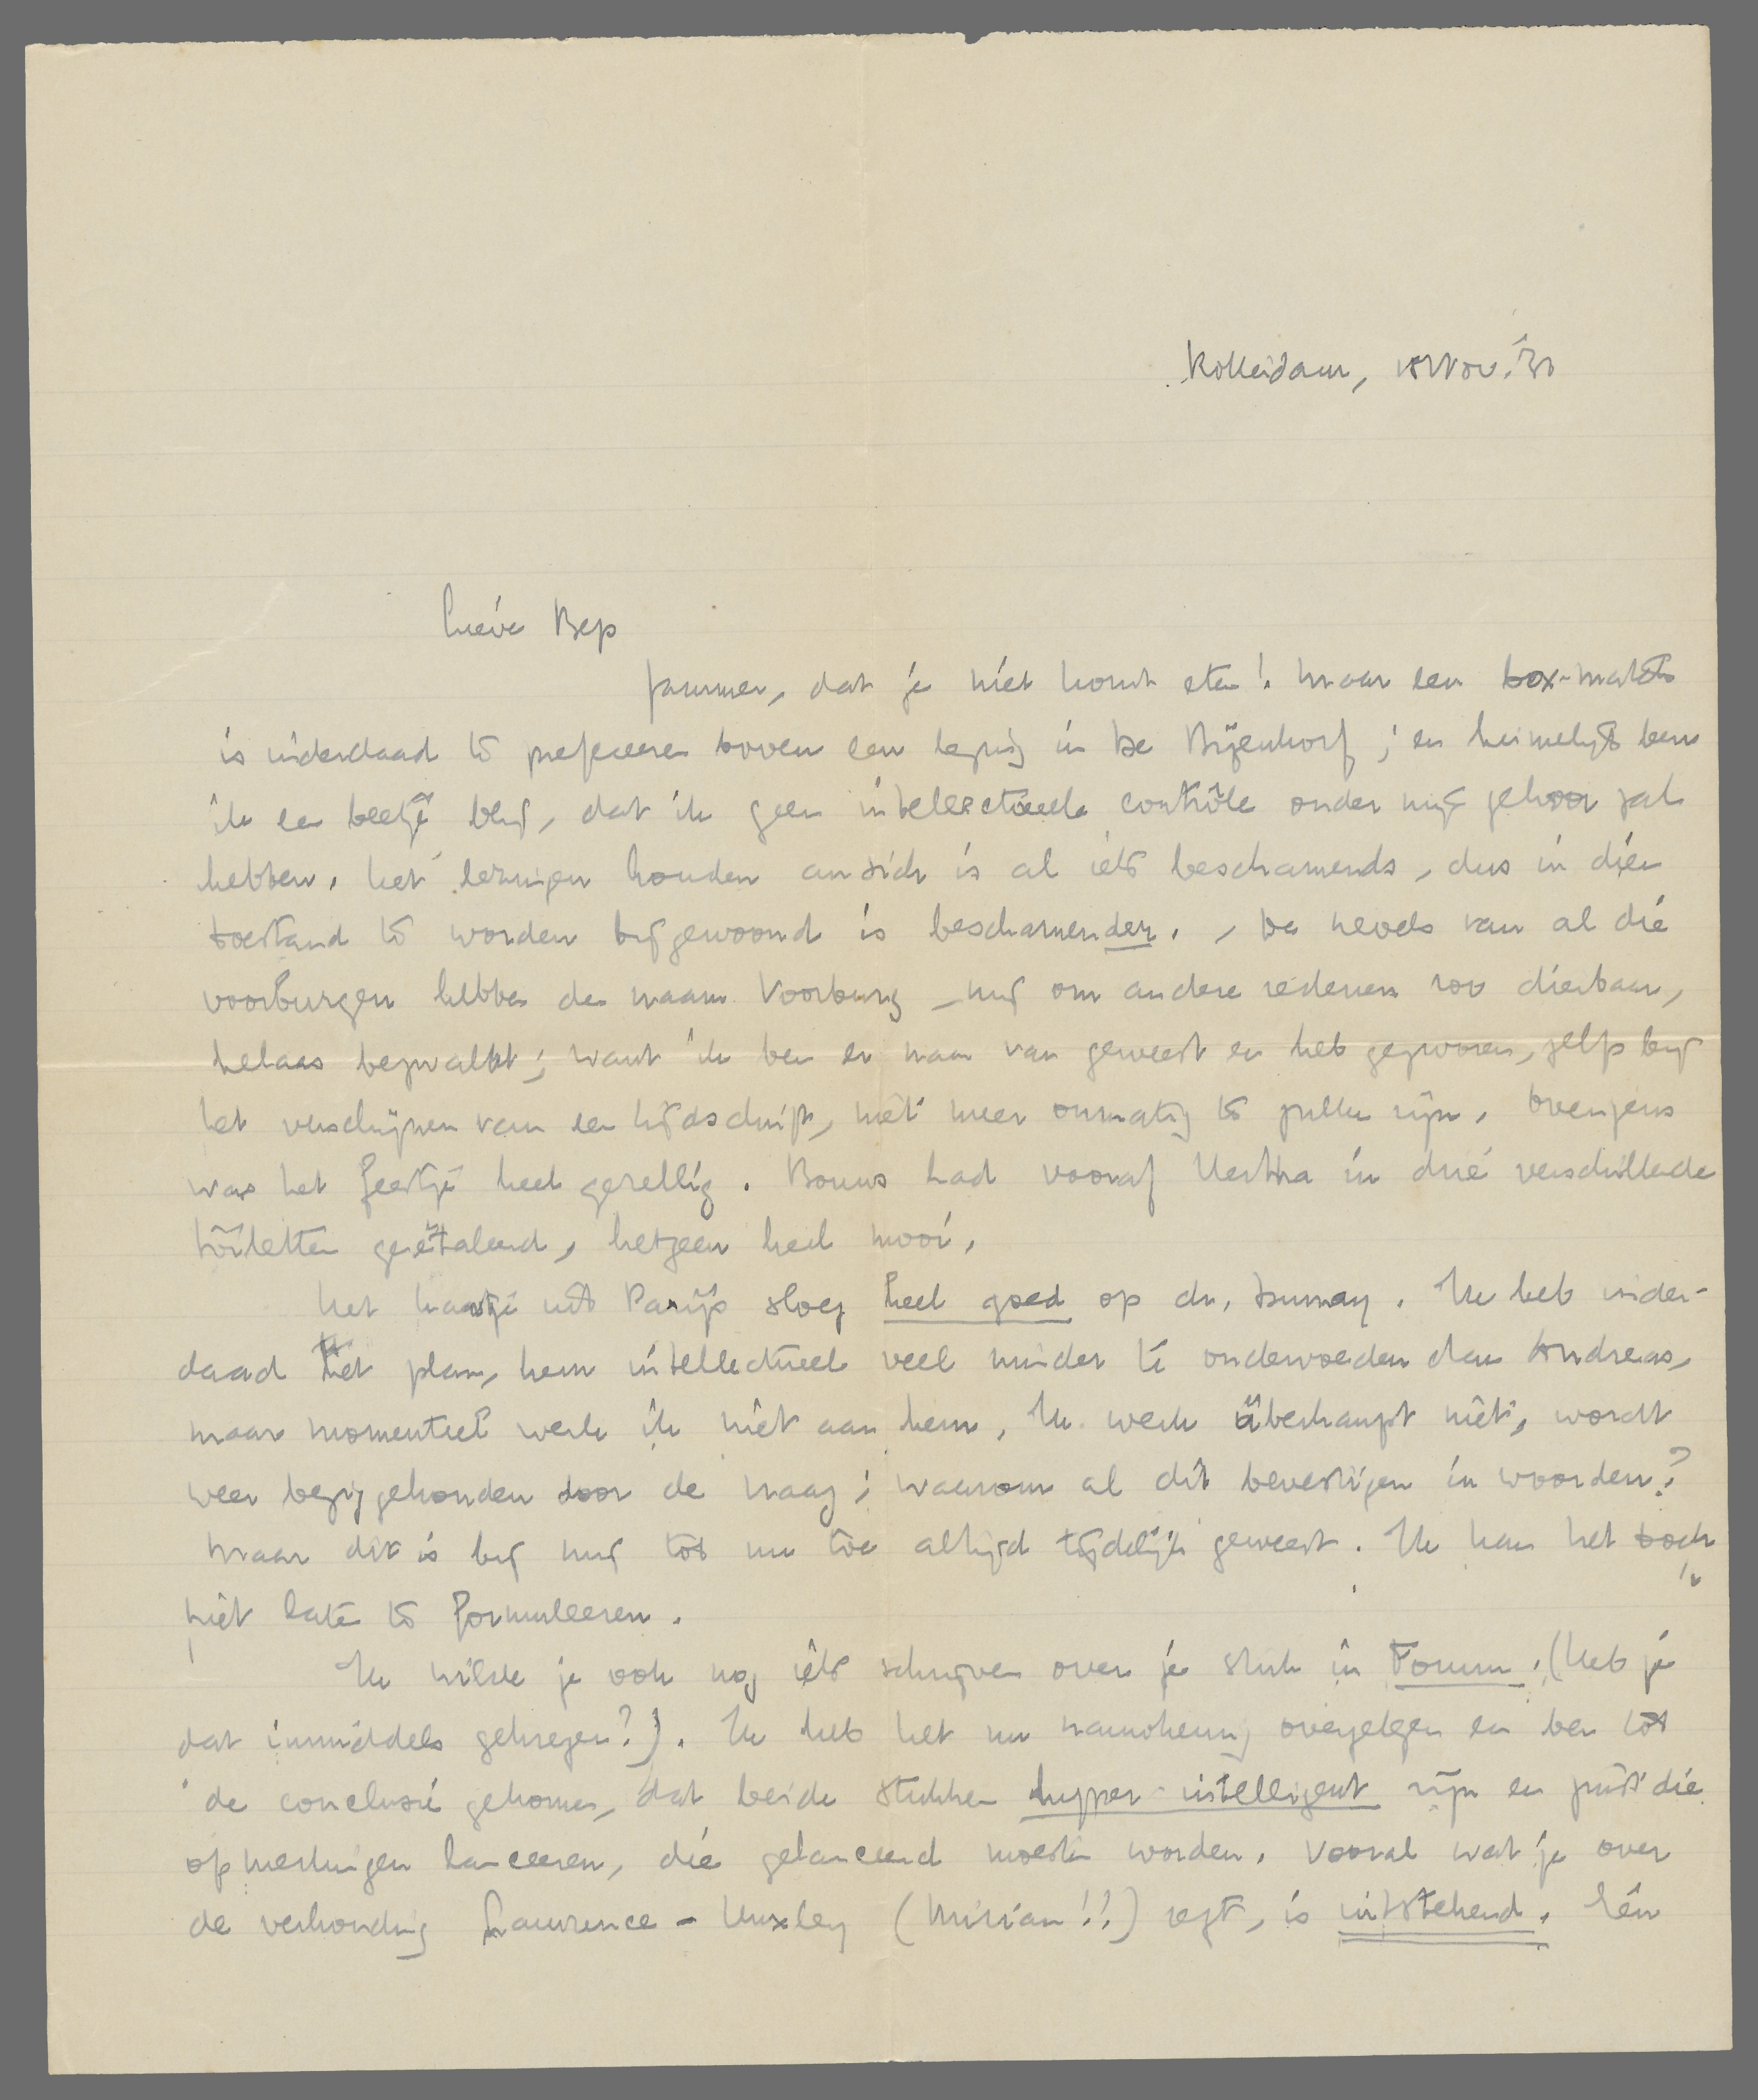 Rotterdam, 18 Nov. '33
Lieve Bep
Jammer, dat je niet komt eten! Maar een box-match
is inderdaad te prefereeren boven een lezing in De Bijenkorf; en heimelijk ben
ik een beetje blij, dat ik geen intellectueele contrôle onder mijn gehoor zal
hebben. Het lezingen houden an sich is al iets beschamends, dus in dien
toestand te worden bijgewoond is beschamender. De nevels van al die
voorburgen hebben de naam Voorburg, mij om andere redenen zoo dierbaar,
helaas bezwalkt; want ik ben er naar van geweest en heb gezworen, zelfs bij
het verschijnen van een tijdschrift, niet meer onmatig te zullen zijn. Overigens
was het feestje heel gezellig. Bouws had vooraf Hestra in drie verschillende
toiletten geëtaleerd, hetgeen heel mooi.
Het kaartje uit Parijs sloeg heel goed op dr. Dumay. Ik heb inder-
daad het plan, hem intellectueel veel minder te ondervoeden dan Andreas,
maar momenteel werk ik niet aan hem. Ik werk überhaupt niet, wordt
weer beziggehouden door de vraag: waarom al dit bevestigen in woorden?
Maar dit is bij mij tot nu toe altijd tijdelijk geweest. Ik kan het toch
niet laten te formuleeren.
Ik wilde je ook nog iets schrijven over je stuk in Forum. (Heb je
dat inmiddels gekregen?). Ik heb het nu nauwkeurig overgelezen en ben tot
de conclusie gekomen, dat beide stukken hyper-intelligent zijn en juist die
opmerkingen lanceeren, die gelanceerd moesten worden. Vooral wat je over
de verhouding Lawrence - Huxley (Miriam!!) zegt, is uitstekend. Eén